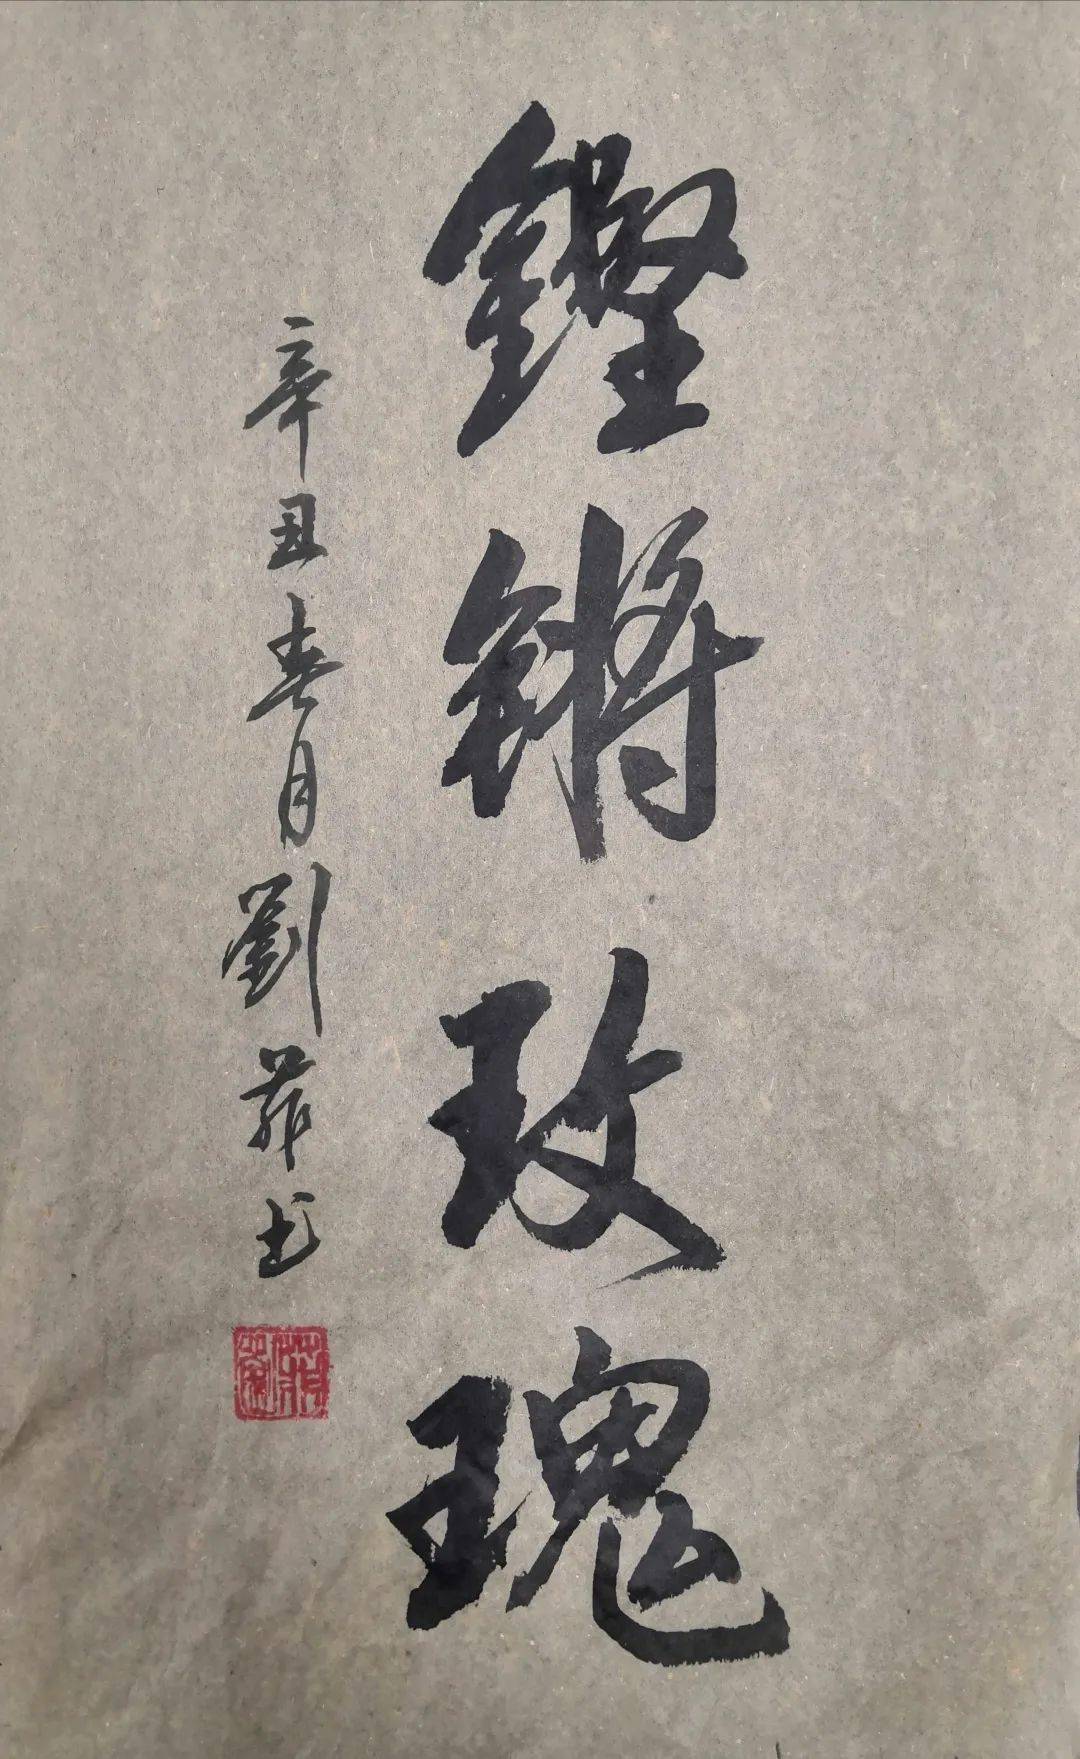 鏗鏘玫瑰
辛丑春月劉菲书